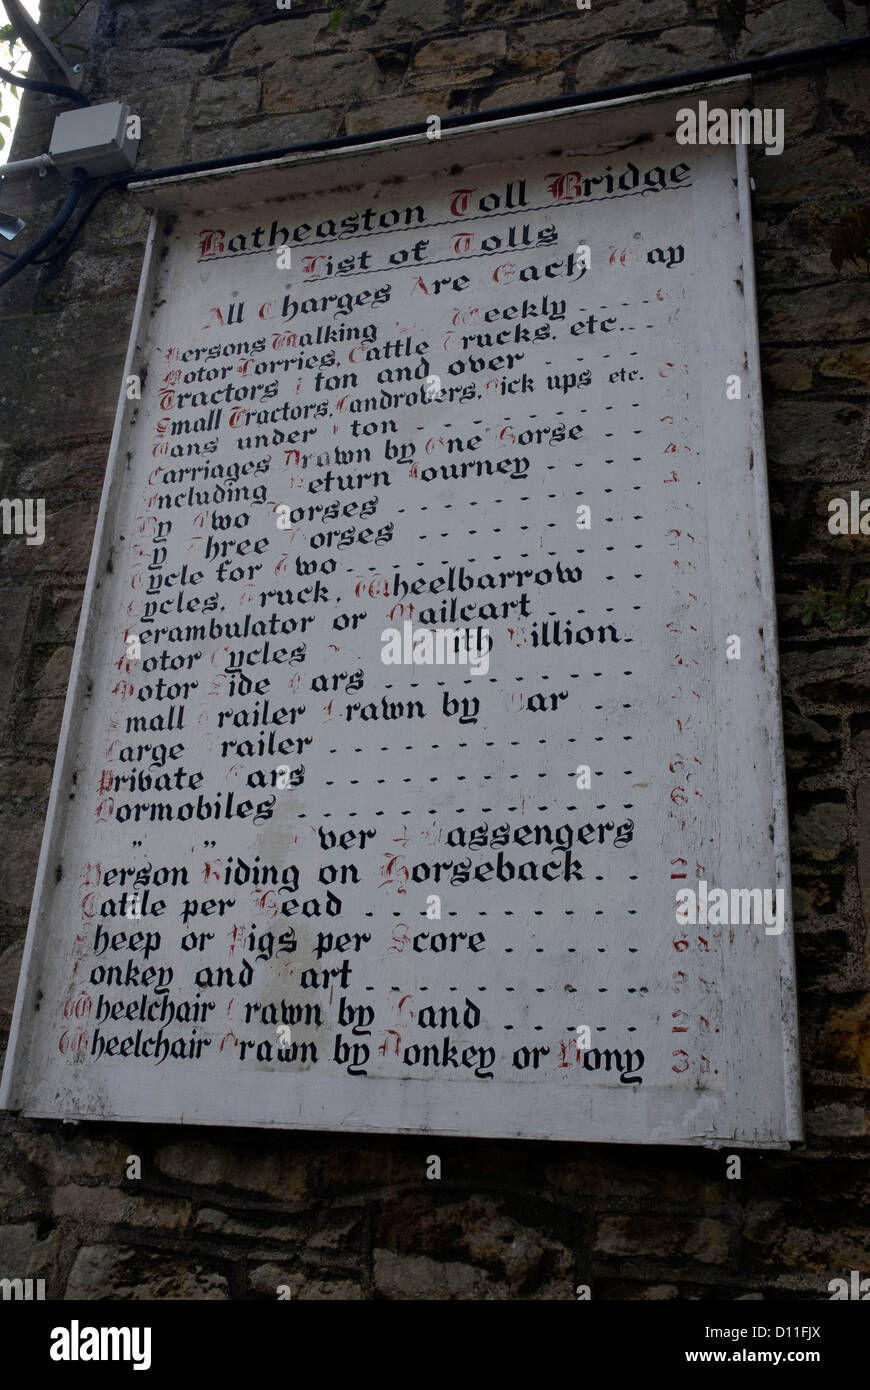 Batheaston Toll Bridge
List of Tolls
All Charges Are Each Way
Persons Walking Weekly
Motor Lorries, Cattle Trucks, etc.
Tractors 1 ton and over
Small Tractors, Landrovers, Pick ups etc.
Vans under 1 ton
Carriages Drawn by One Horse
Including Return Journey
By Two Horses
By Three Horses
Cycle for Two
Cycles, Truck, Wheelbarrow
Perambulator or Mailcart
Motor Cycles With Pillion
Motor Side Cars
Small Trailer Drawn by Car
Large Trailer
Private Cars
Dormobiles
" " Over 4 Passengers
Person Riding on Horseback 2d.
Cattle per Head
Sheep or Pigs per Score 6d.
Donkey and Cart 3d.
Wheelchair Drawn by Hand 2d.
Wheelchair Drawn by Donkey or Pony 3d.
alamy
Image ID: D11FJX
www.alamy.com